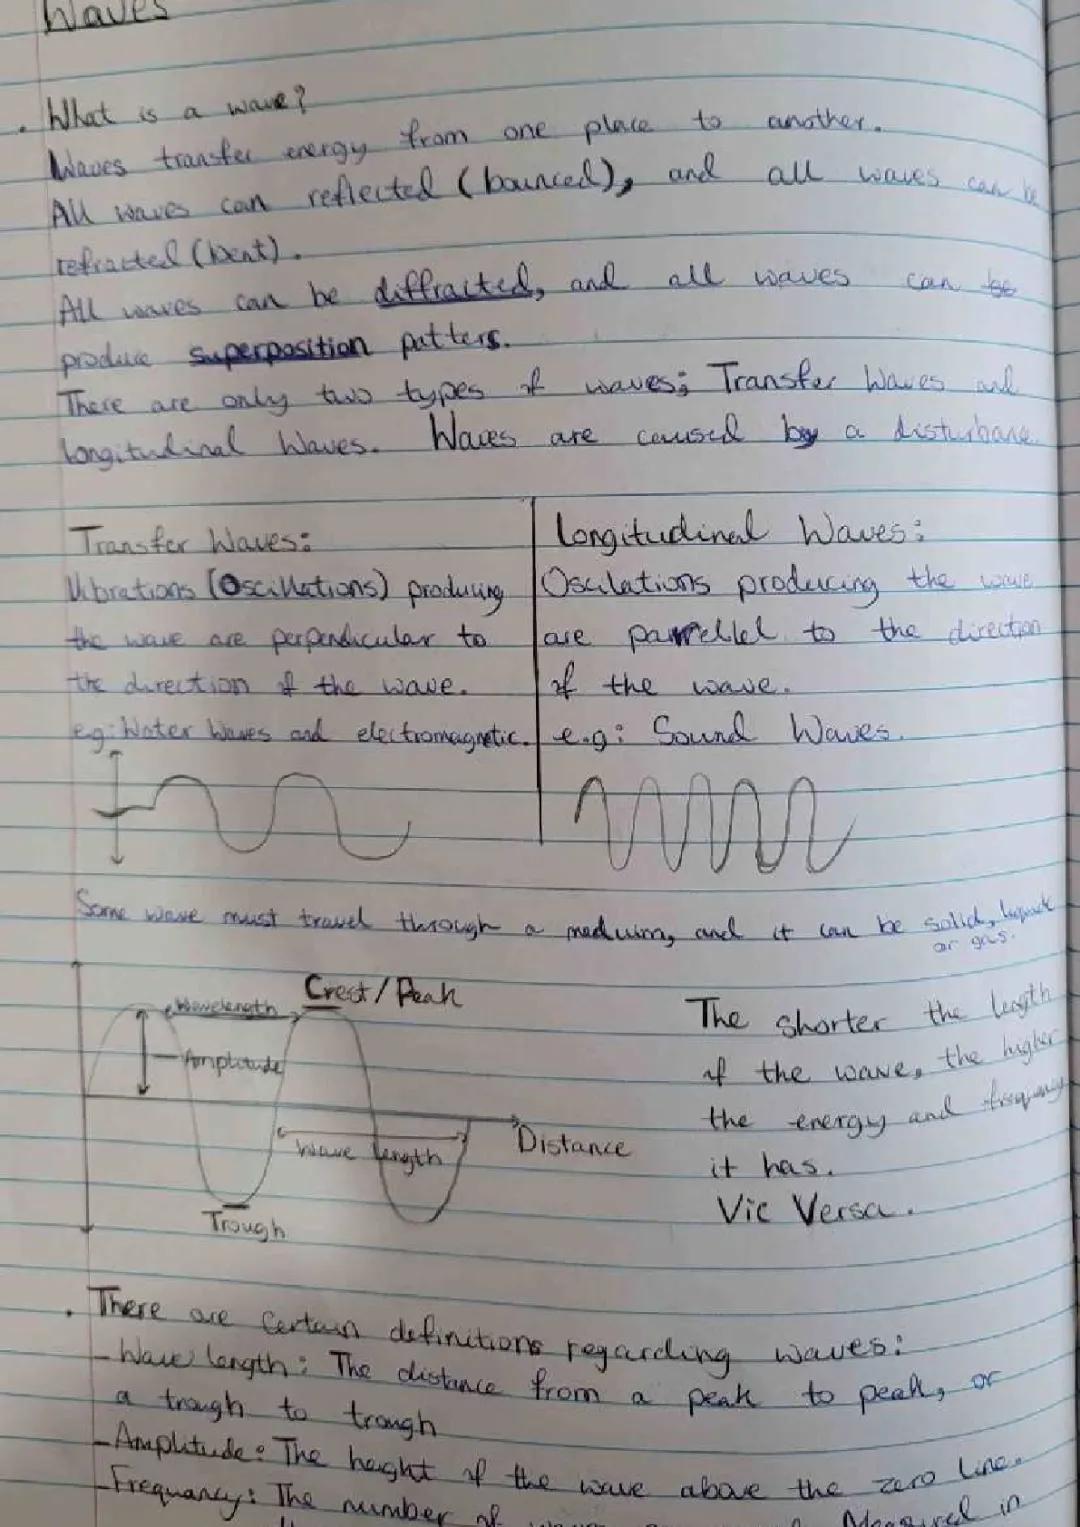 Waves
. What is a wave?
Waves transfer energy from one place to another.
All waves can reflected (bounced), and all waves can be
refracted (bent).
All waves can be diffracted, and all waves can be
produce superposition patters.
There are only two types of waves; Transfer Waves and
longitudinal Waves. Waves are caused by a disturbance.
Transfer Waves:
Vibrations (Oscillations) producing
the wave are perpendicular to
the direction of the wave.
eg: Water Waves and electromagnetic.
longitudinal Waves:
Oscilations producing the wave
are parrellel to the direction
of the wave.
e.g: Sound Waves.
Some wave must travel through a medium, and it can be solid,
or gas.
Crest/Peak
Wavelength
Amplitude
Distance
Wave length
Trough
The shorter the length
of the wave, the higher
the energy and frequency
it has.
Vic Versa.
. There are certain definitions regarding waves:
- Wave length: The distance from a peak to peak, or
a trough to trough
- Amplitude: The height of the wave above the zero line.
- Frequancy: The number of Measured in